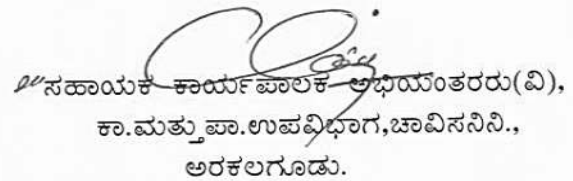 ಸಹಾಯಕ ಕಾರ್ಯಪಾಲಕ ಅಭಿಯಂತರರು(ವಿ),
ಕಾ.ಮತ್ತು ಪಾ.ಉಪವಿಭಾಗ,ಚಾವಿಸನಿನಿ.,
ಅರಕಲಗೂಡು.